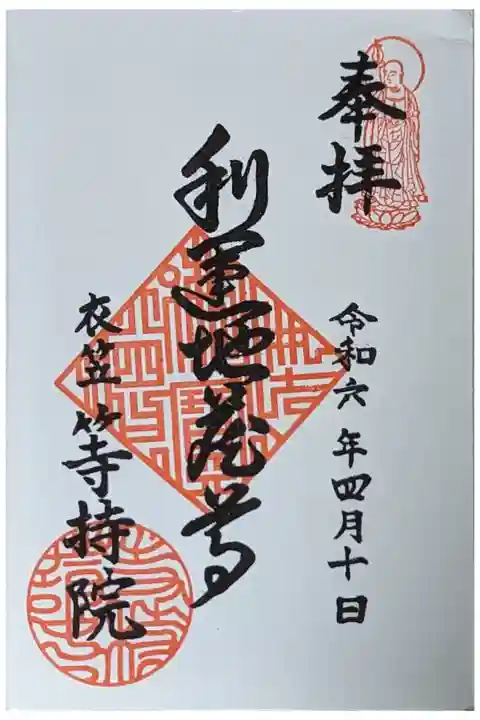 奉拝
令和六年四月十日
利運地蔵尊
衣笠 等持院